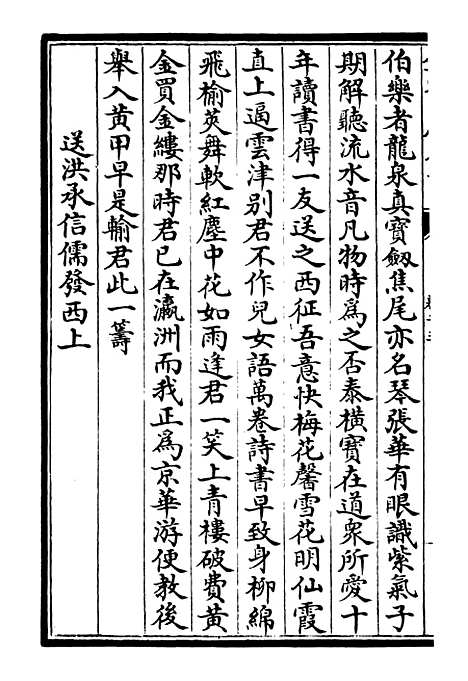 伯樂者龍泉真寶劔焦尾亦名琴張華有眼識紫氣子
期解聽流水音凡物時爲之否泰橫寶在道衆所愛十
年讀書得一友送之西征吾意快梅花馨雪花明仙霞
直上逼雲津别君不作兒女語萬卷詩書早致身柳綿
飛榆莢舞軟紅塵中花如雨逢君一笑上青樓破費黄
金買金縷那時君已在瀛洲而我正爲京華游便教後
舉入黄甲早是輸君此一籌
送洪承信儒發西上